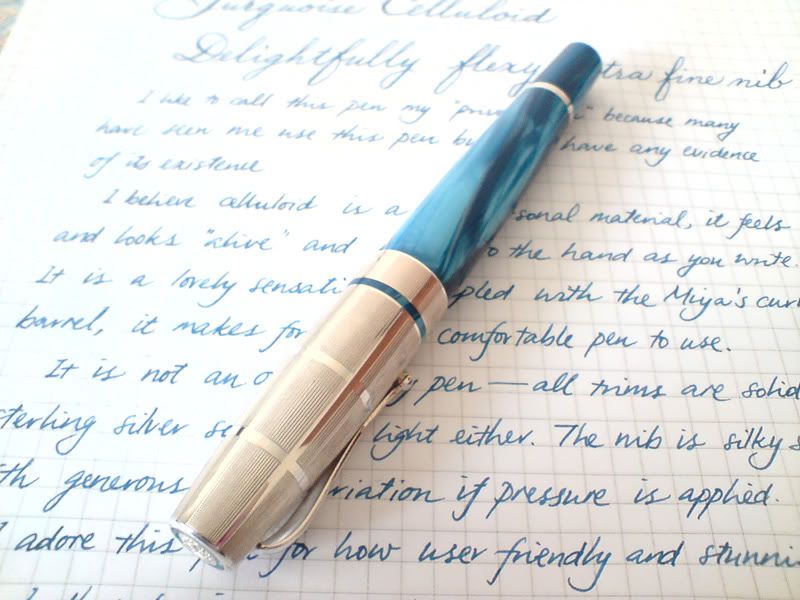 Turquoise Celluloid
Delightfully flexy extra fine nib
I like to call this pen my " because many
have seen me use this pen but have any evidence
of its existence
I believe celluloid is a sonal material, it feels
and looks "alive" and to the hand as you write.
It is a lovely sensati pled with the Miya's cur
barrel, it makes for comfortable pen to use.
It is not an o y pen — all trims are solid
sterling silver so light either. The nib is silky s
th generous riation if pressure is applied.
I adore this for how user friendly and stunni